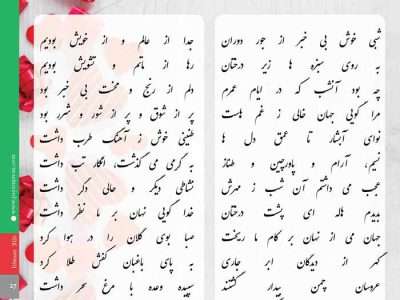 شبی خوش بی خبر از جور دوران
جدا از عالم و از خویش بودیم
به روی سبزه ها زیر درختان
رها از ماتم و تشویش بودیم
چه بود آنشب که در ایام عمرم
دلم از رنج و محنت بی خبر بود
مرا گویی جهان خالی ز غم هاست
پر از شوق و پر از شور و شرر بود
نوای آبشار تا عمق دل ها
طنینی خوش ز آهنگ طرب داشت
نسیم، آرام و پاورچین و طناز
به گرمی می گذشت، انگار تب داشت
عجب می داشتم آن شب ز مهرش
نشاطی دیگر و حالی دگر داشت
بدیدم هاله ای پشت درختان
خدا گویی نهان بر ما نظر داشت
جهان می از نهان بر کام ما ریخت
صبا بوی گلان را در هوا کرد
گهر از دیدگان ابر جاری
به پای باغبان کفش طلا کرد
عروسان چمن بیدار گشتند
سپیده وعده با مرغ سحر داشت